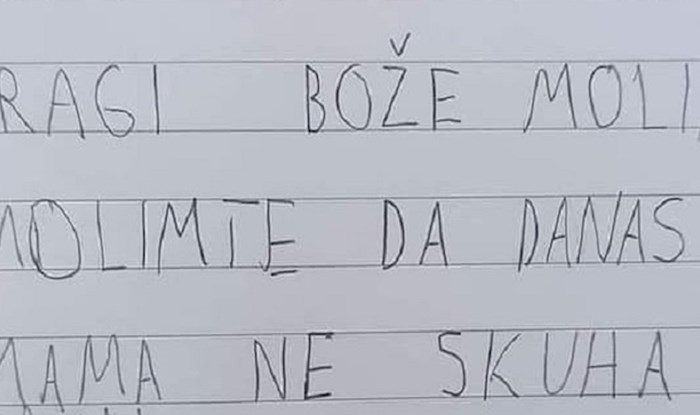 RAGI BOŽE MOLI
MOLIMTE DA DANAS
MAMA NE SKUHA